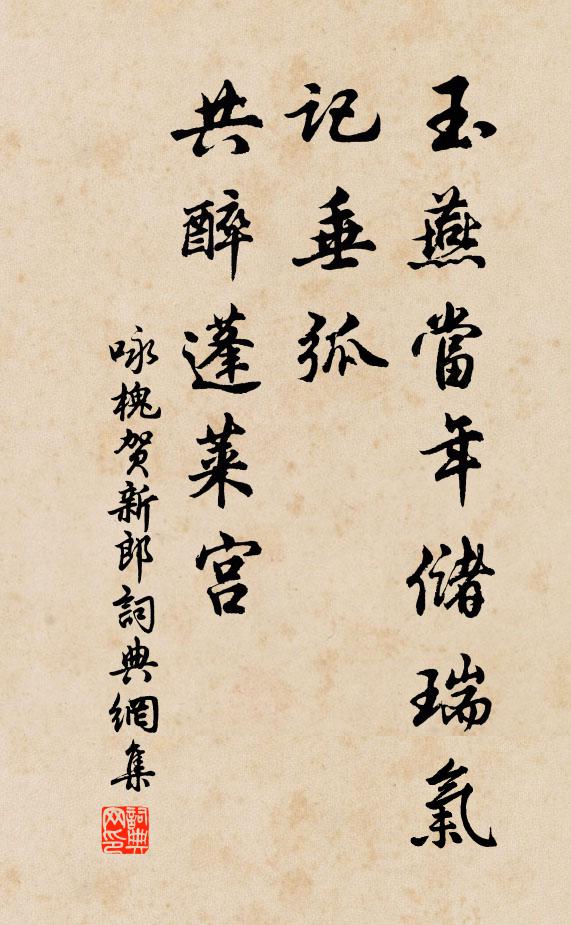 玉燕當年儲瑞氣
記垂弧
共醉蓬萊宮
咏槐贺新郎詞典網集
詞典
网印